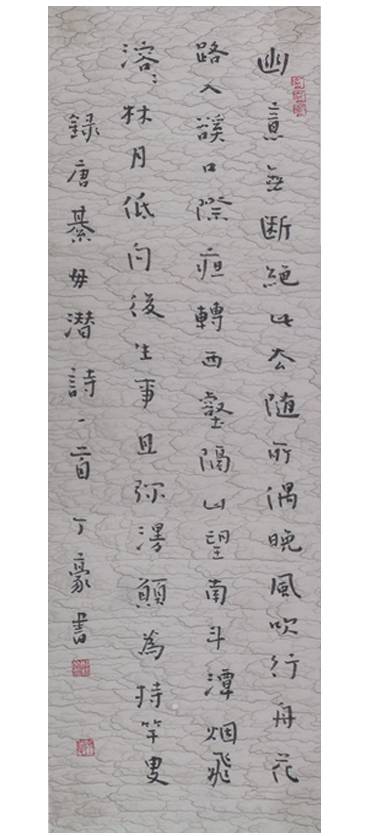 幽意無断絕此去随所偶晚風吹行舟花
路入谿口際夜轉西壑隔山望南斗潭烟飛
溶〻林月低向後生事且弥漫願為持竿叟
録唐綦毋潜詩一首丁豪書